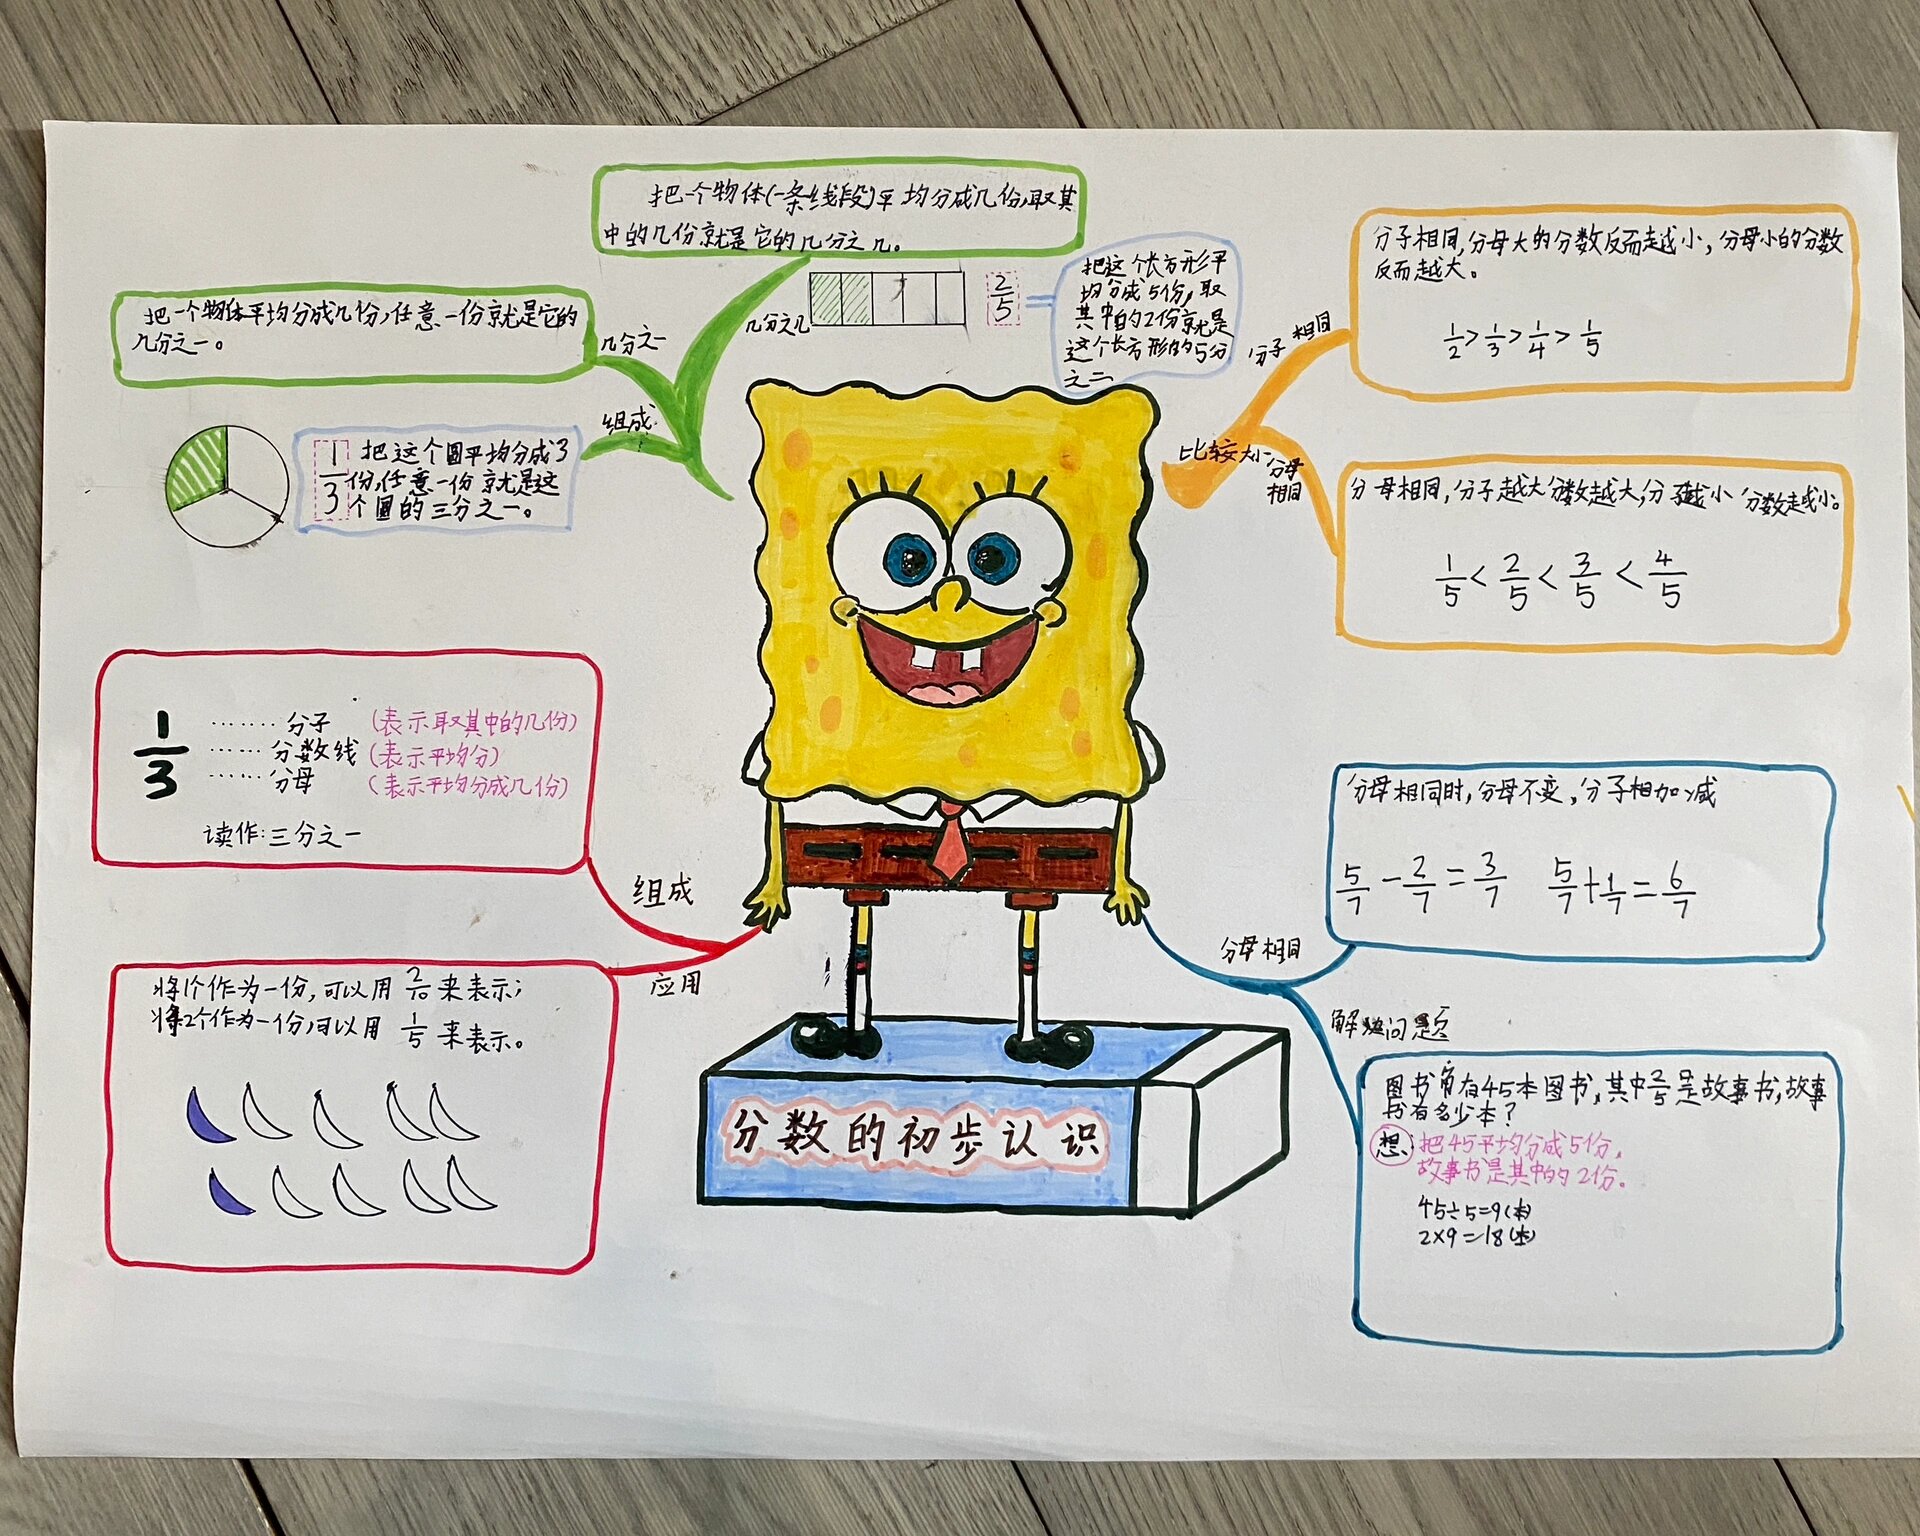 把一个物体(一条线段)平均分成几份,取其
中的几份就是它的几分之几。
把一个物体平均分成几份,任意一份就是它的
几分之一。
几分之一
几分之几
2/5
把这个长方形平
均分成5份,取
其中的2份就是
这个长方形的5分
之二
组成
1/3
把这个圆平均分成3
份,任意一份就是这
个圆的三分之一。
分子相同
分子相同,分母大的分数反而越小,分母小的分数
反而越大。
1/2>1/3>1/4>1/5
比较大小
分母
相同
分母相同,分子越大分数越大,分子越小分数越小。
1/5<2/5<3/5<4/5
1/3
……分子(表示取其中的几份)
……分数线(表示平均分)
……分母(表示平均分成几份)
读作:三分之一
组成
应用
将1个作为一份,可以用2/10来表示;
将2个作为一份,可以用1/5来表示。
分母相同时,分母不变,分子相加减
5/7-2/7=3/7 5/7+1/7=6/7
分母相同
解决问题
图书角有45本图书,其中2/5是故事书,故事
书有多少本?
想:把45平均分成5份,
故事书是其中的2份。
45÷5=9(本)
2×9=18(本)
分数的初步认识